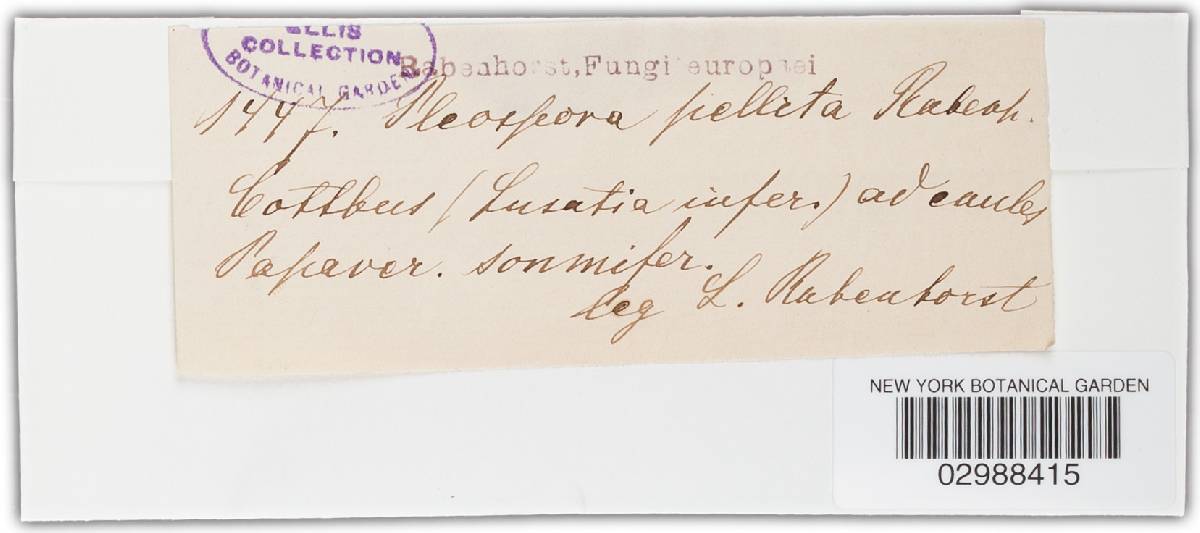 ELLIS
COLLECTION
BOTANICAL GARDEN
Rabenhorst, Fungi europaei
1447. Pleospora pellita Rabenh.
Cottbus (Lusatia infer.) ad caules
Papaver. sonmifer.
leg L. Rabenhorst
NEW YORK BOTANICAL GARDEN
02988415